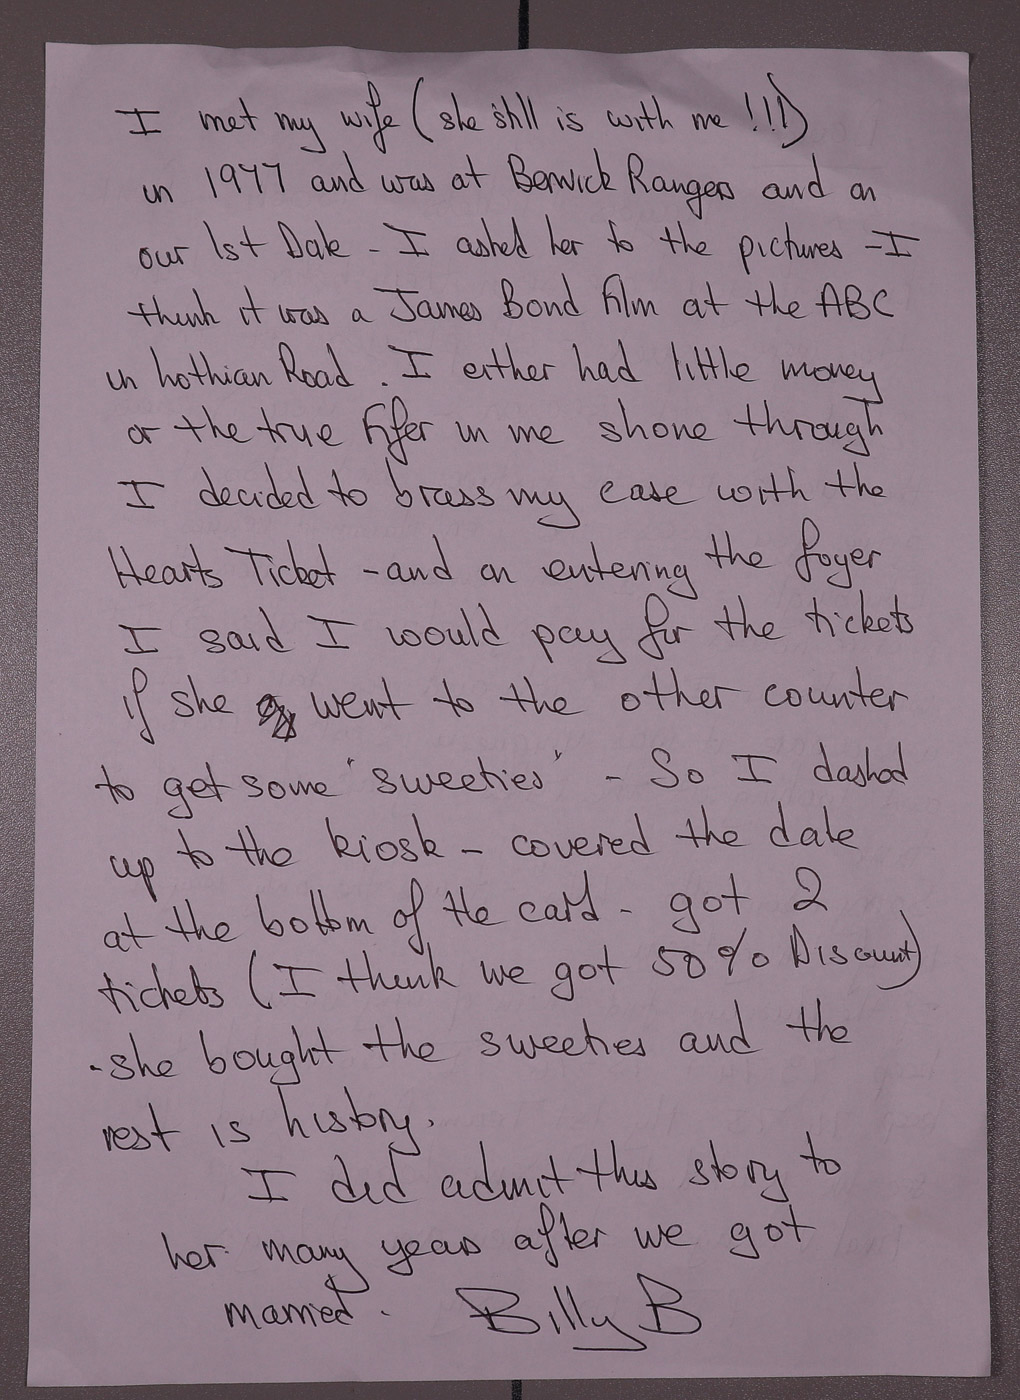 I met my wife (she still is with me !!!)
in 1977 and was at Berwick Rangers and on
our 1st Date - I asked her to the pictures - I
think it was a James Bond film at the ABC
in Lothian Road. I either had little money
or the true Fifer in me shone through
I decided to brass my case with the
Hearts Ticket - and on entering the foyer
I said I would pay for the tickets
if she went to the other counter
to get some 'sweeties' - So I dashed
up to the kiosk - covered the date
at the bottom of the card - got 2
tickets (I think we got 50% Discount)
- she bought the sweeties and the
rest is history.
I did admit this story to
her many years after we got
married. Billy B